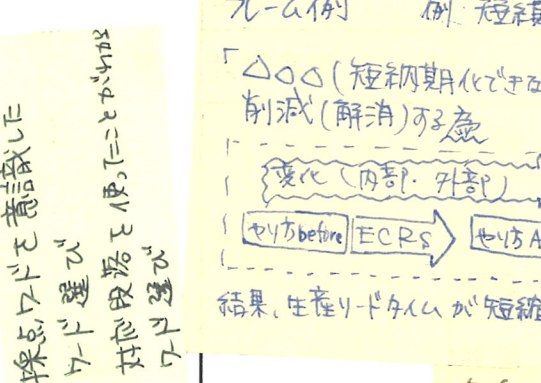 採点ワードを意識した
ワード選び
対応段落と使ったことがわかる
ワード選び
フレーム例 例:短納期
「△○○(短納期化できな
削減(解消)する為
変化(内部・外部)
やり方before ECRS やり方A
結果、生産リードタイムが短縮